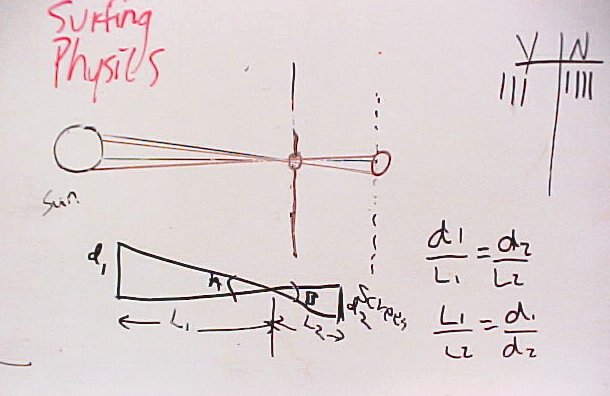 Surfing
Physics
Y N
||| ||||
Sun
d1
A B d2 Screen
L1 L2
d1/L1 = d2/L2
L1/L2 = d1/d2